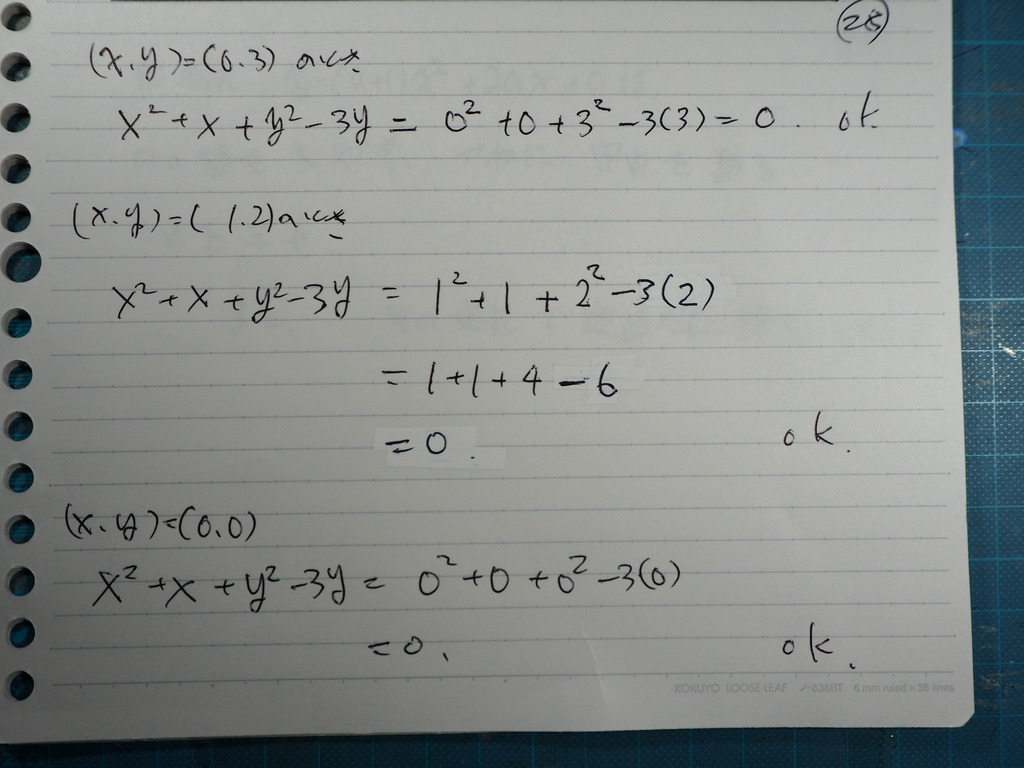 (25)
(x.y)=(0.3) のとき
x²+x+y²-3y = 0²+0+3²-3(3)=0. ok.
(x.y)=(1.2)のとき
x²+x+y²-3y = 1²+1+2²-3(2)
=1+1+4-6
=0. ok.
(x.y)=(0.0)
x²+x+y²-3y = 0²+0+0²-3(0)
=0. ok.
KOKUYO LOOSE-LEAF ノ-836BT 6 mm ruled×36 lines